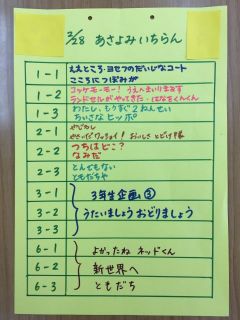 3/28 あさよみいちらん
1-1 ええところ・ヨセフのだいじなコート
こころにつぼみが
1-2 コッケモーモー! うえへまいりまぁす
ランドセルがやってきた・はなさくんくん
1-3 わたし、もうすぐ2ねんせい
ちいさなヒッポ
2-1
わっしょい! おいしさ とどけ隊
2-2 つちはどこ?
なみだ
2-3 とんでもない
ともだちや
3-1 3年生企画③
3-2 うたいましょう おどりましょう
3-3
6-1 よかったね ネッドくん
6-2 新世界へ
6-3 ともだち